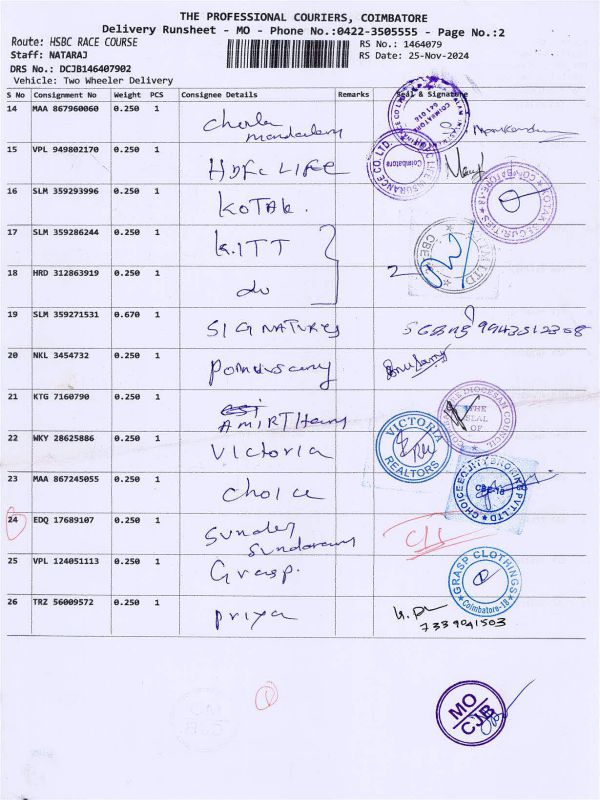 THE PROFESSIONAL COURIERS, COIMBATORE
Delivery Runsheet - MO - Phone No.:0422-3505555 - Page No.:2
Route: HSBC RACE COURSE RS No.: 1464079
Staff: NATARAJ RS Date: 25-Nov-2024
DRS No.: DCJB146407902
Vehicle: Two Wheeler Delivery
S No Consignment No Weight PCS Consignee Details Remarks Seal & Signature
14 MAA 867960060 0.250 1
15 VPL 949802170 0.250 1 HDFC LIFE
16 SLM 359293996 0.250 1 KOTAK.
17 SLM 359286244 0.250 1 K.ITT
18 HRD 312863919 0.250 1 do 2
19 SLM 359271531 0.670 1 SIGNATURES 9943512308
20 NKL 3454732 0.250 1 Ponnusamy
21 KTG 7160790 0.250 1
THE SEAL OF
22 WKY 28625886 0.250 1 Victoria
VICTORIA REALTORS
23 MAA 867245055 0.250 1 choice
CBE-18
24 EDQ 17689107 0.250 1 Sunder
25 VPL 124051113 0.250 1 Grasp.
GRASP CLOTHINGS Coimbatore-18
26 TRZ 56009572 0.250 1 priya
7339041503
1
MO
CJB